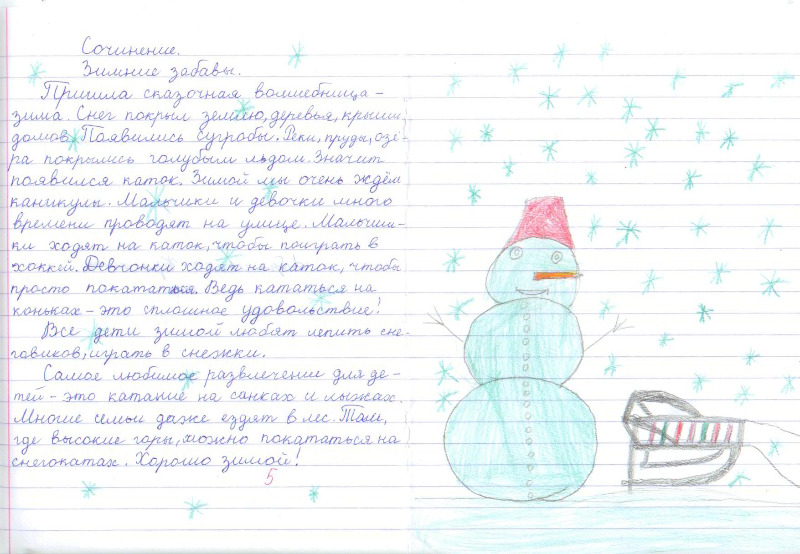 Сочинение.
Зимние забавы.
Пришла сказочная волшебница -
зима. Снег покрыл землю, деревья, крыши
домов. Появились сугробы. Реки, пруды, озё-
ра покрылись голубым льдом. Значит
появился каток. Зимой мы очень ждём
каникулы. Мальчики и девочки много
времени проводят на улице. Мальчи-
ки ходят на каток, чтобы поиграть в
хоккей. Девчонки ходят на каток, чтобы
просто покататься. Ведь кататься на
коньках - это сплошное удовольствие!
Все дети зимой любят лепить сне-
говиков, играть в снежки.
Самое любимое развлечение для де-
тей - это катание на санках и лыжах.
Многие семьи даже ездят в лес. Там,
где высокие горы, можно покататься на
снегокатах. Хорошо зимой!
5